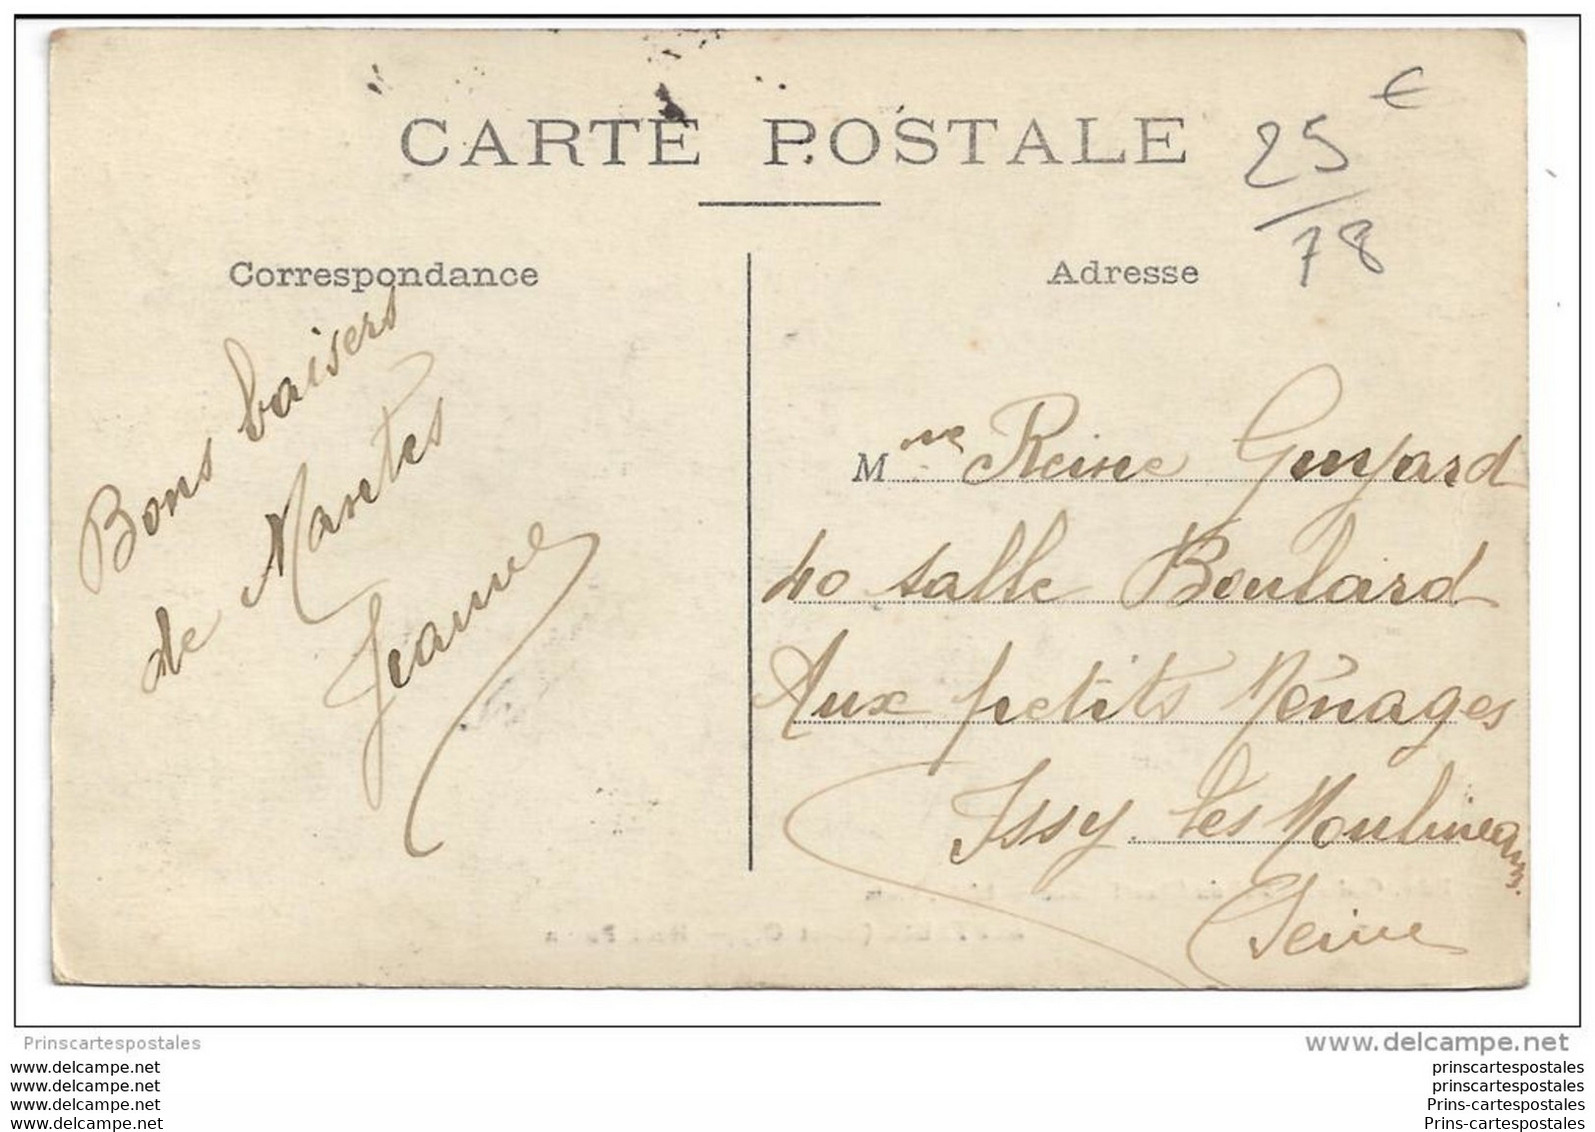 CARTE POSTALE
25 €
/78
Correspondance
Adresse
Bons baisers
de Mantes
Jeanne
Mme Reine Guyard
40 salle Boulard
Aux petits Ménages
Issy les Moulineaux.
Seine
Prinscartespostales
www.delcampe.net
www.delcampe.net
www.delcampe.net
www.delcampe.net
www.delcampe.net
prinscartespostales
prinscartespostales
Prins-cartespostales
Prins-cartespostales